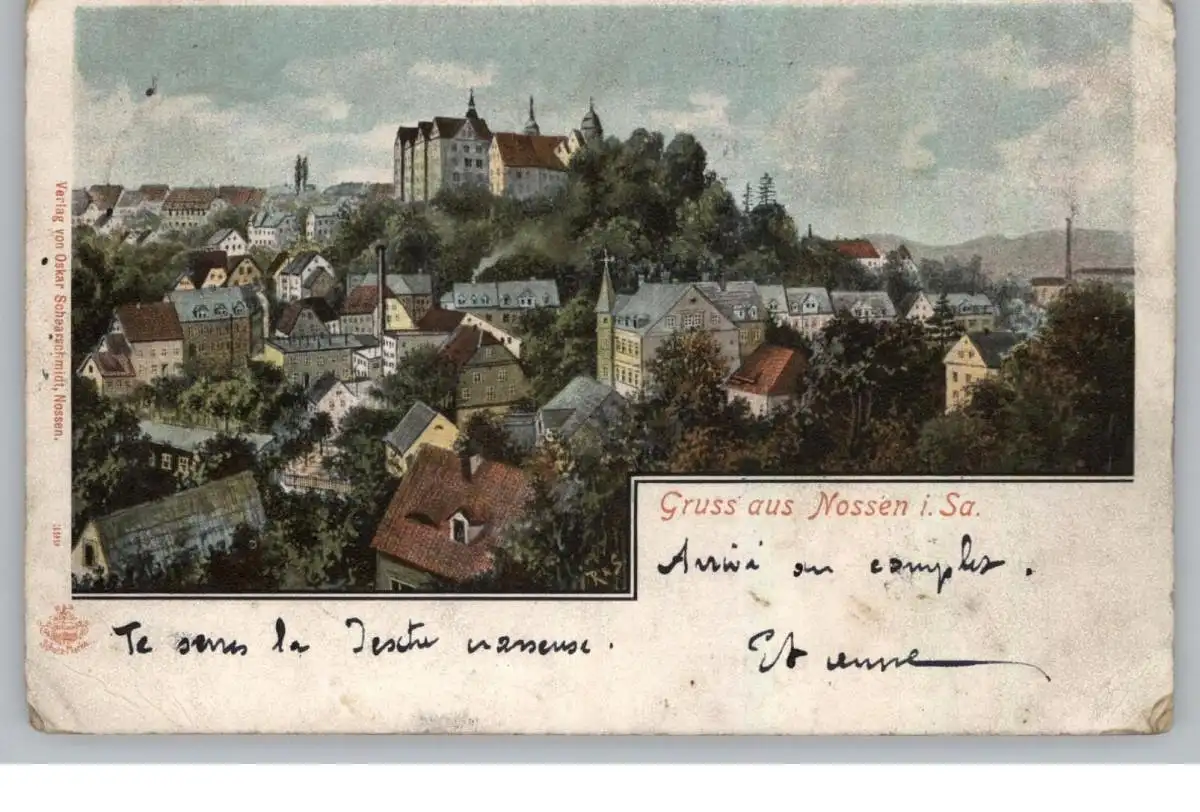 Verlag von Oskar Schearschmidt, Nossen.
Gruss aus Nossen i. Sa.
Arrivé au complet.
Te serres la
Etienne